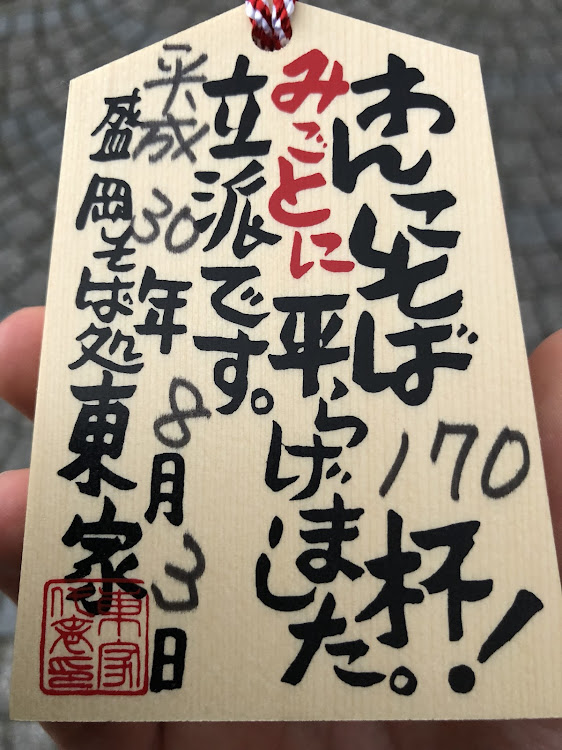 わんこそば170杯！
みごとに平らげました。
立派です。
平成30年8月3日
盛岡そば処東家